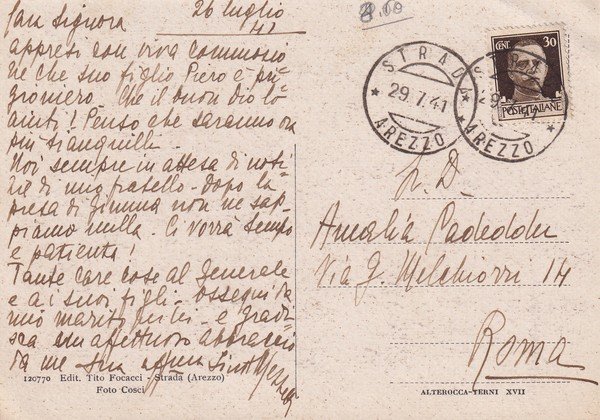 Cara Signora 26 luglio
41
appresi con viva commozio
ne che suo figlio Piero è pri
gioniero. Che il buon Dio lo
aiuti! Penso che saranno ora
più tranquilli.
Noi sempre in attesa di noti
zie di mio fratello - dopo la
presa di Gimma non ne sap
piamo nulla. Ci vorrà tempo
e pazienza!
Tante care cose al Generale
e ai suoi figli - ossequi da
mio marito per lei - e gradi
sca un affettuoso abbraccio
da me sua
120770 Edit. Tito Focacci - Strada (Arezzo)
Foto Cosci
8.00
CENT. 30
POSTE ITALIANE
STRADA
29.7.41
AREZZO
STRADA
29
AREZZO
N. D.
Amalia Cadeddu
Via G. Melchiorri 14
Roma
ALTEROCCA-TERNI XVII